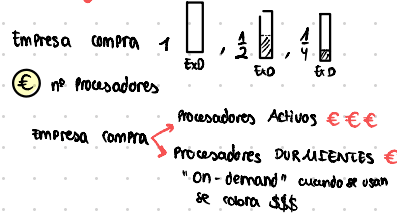 Empresa compra 1 ExD , 1/2 ExD , 1/4 ExD
€ nº Procesadores
Empresa compra
Procesadores Activos € € €
Procesadores DURMIENTES €
"on-demand" cuando se usan
se cobra $$$